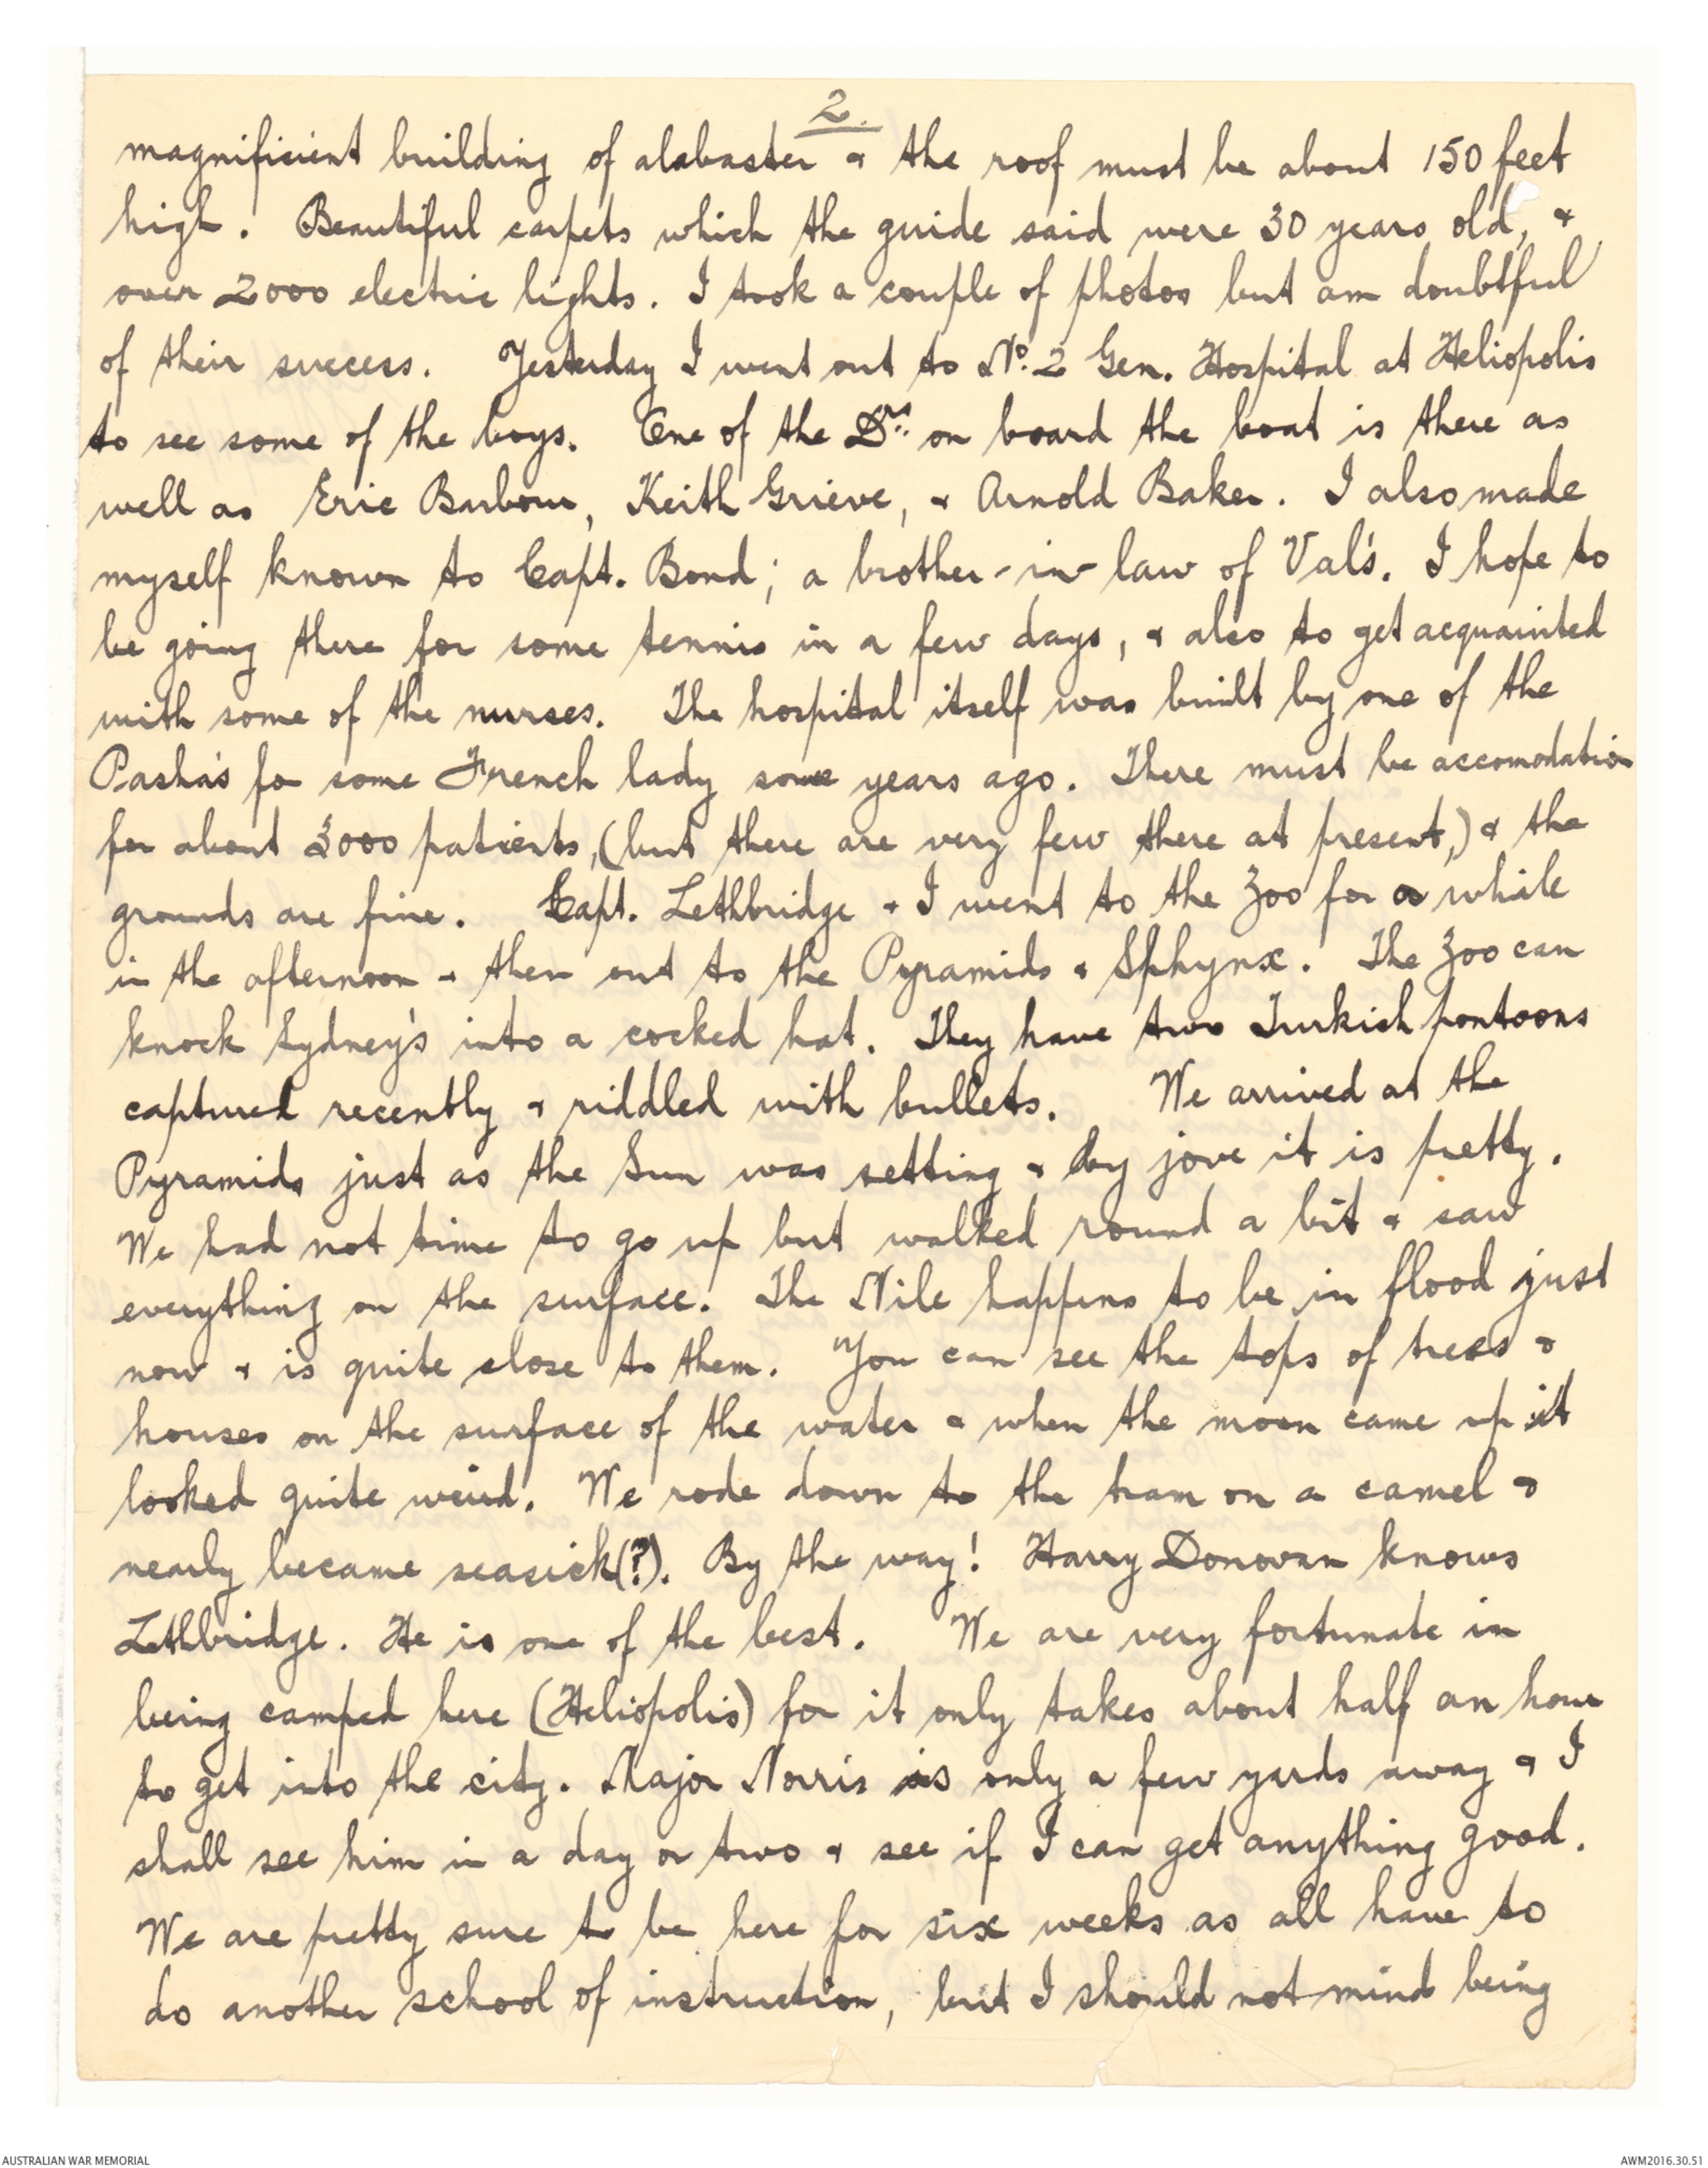 2.
magnificient building of alabaster & the roof must be about 150 feet
high. Beautiful carpets which the guide said were 30 years old, &
over 2000 electric lights. I took a couple of photos but am doubtful
of their success. Yesterday I went out to No. 2 Gen. Hospital at Heliopolis
to see some of the boys. One of the Drs. on board the boat is there as
well as Eric Barbour, Keith Grieve, & Arnold Baker. I also made
myself known to Capt. Bond; a brother-in-law of Val's. I hope to
be going there for some tennis in a few days, & also to get acquainted
with some of the nurses. The hospital itself was built by one of the
Pasha's for some French lady some years ago. There must be accomodation
for about 3000 patients, (but there are very few there at present,) & the
grounds are fine. Capt. Lethbridge & I went to the Zoo for a while
in the afternoon & then out to the Pyramids & Sphynx. The Zoo can
knock Sydney's into a cocked hat. They have two Turkish pontoons
captured recently & riddled with bullets. We arrived at the
Pyramids just as the Sun was setting & by jove it is pretty.
We had not time to go up but walked round a bit & saw
everything on the surface. The Nile happens to be in flood just
now & is quite close to them. You can see the tops of trees &
houses on the surface of the water & when the moon came up it
looked quite weird. We rode down to the tram on a camel &
nearly became seasick(?). By the way! Harry Donovan knows
Lethbridge. He is one of the best. We are very fortunate in
being camped here (Heliopolis) for it only takes about half an hour
to get into the city. Major Norris is only a few yards away & I
shall see him in a day or two & see if I can get anything good.
We are pretty sure to be here for six weeks as all have to
do another school of instruction, but I should not mind being
AUSTRALIAN WAR MEMORIAL
AWM2016.30.51